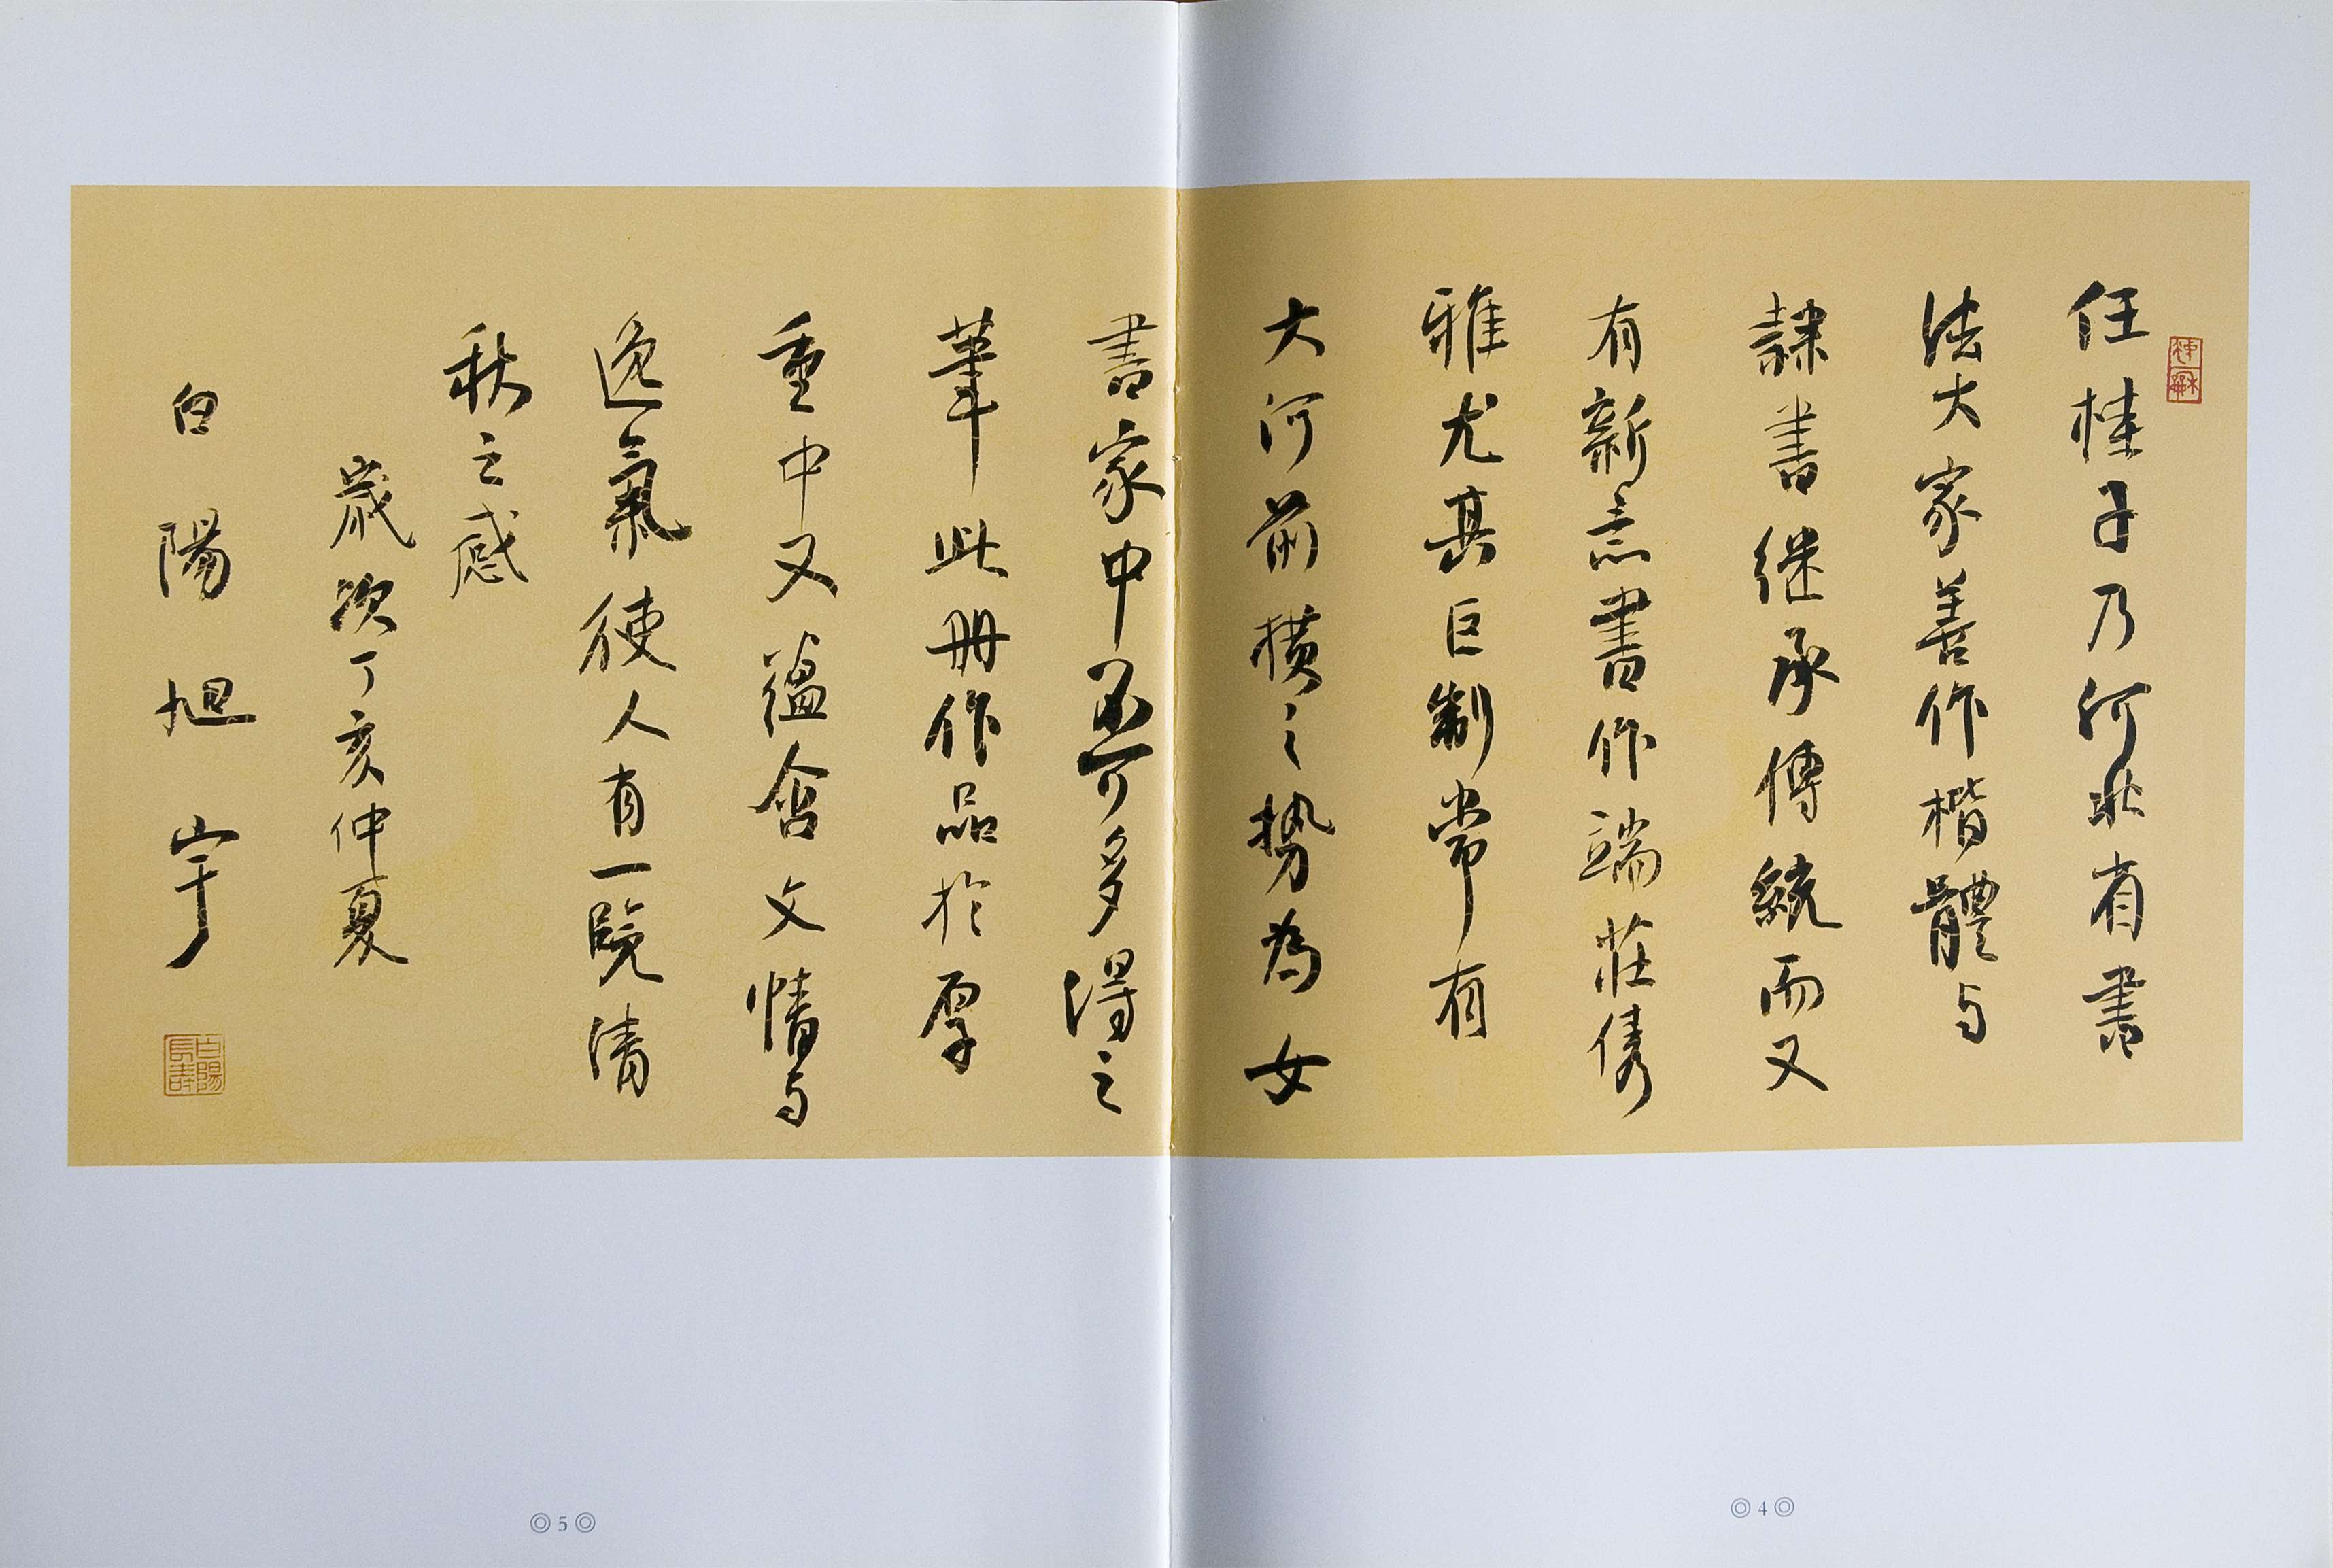 任桂子乃河北省書
法大家善作楷體与
隸書继承傳統而又
有新意書作端莊儁
雅尤其巨制常有
大河前横之势為女
書家中不可多得之
筆此册作品於厚
重中又藴含文情与
逸氣使人有一覽清
秋之感
歲次丁亥仲夏
白陽旭宇
白陽
長壽
4
5